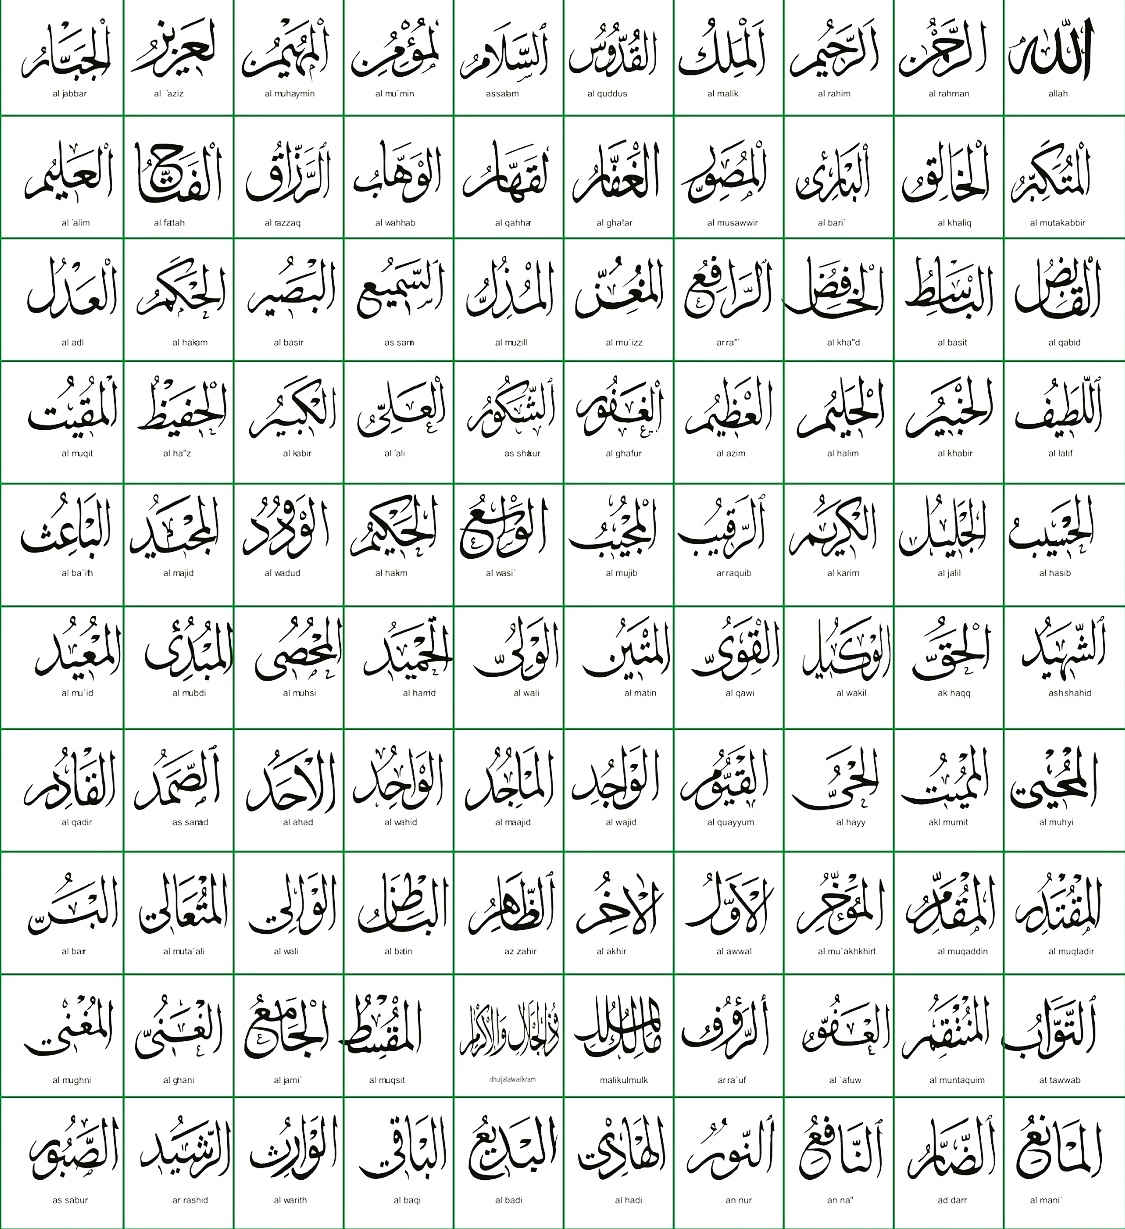 الله الرحمن الرحيم الملك القدوس السلام لمؤمن المهيمن لعزيز الجبار
al jabbar al `aziz al muhaymin al mu`min assalam al quddus al malik al rahim al rahman allah
المتكبر الخالق البارئ المصور الغفار لقهار الوهاب الرزاق الفتاح العليم
al `alim al fattah al razzaq al wahhab al qahhar al ghafar al musawwir al bari` al khaliq al mutakabbir
القابض الباسط الخافض الرافع المعز المذل السميع البصير الحكم العدل
al adl al hakam al basir as sami al muzill al mu`izz ar ra"` al kha"d al basit al qabid
اللطيف الخبير الحليم العظيم الغفور الشكور العلي الكبير الحفيظ المقيت
al muqit al ha"z al kabir al `ali as shakur al ghafur al azim al halim al khabir al latif
الحسيب الجليل الكريم الرقيب المجيب الواسع الحكيم الودود المجيد الباعث
al ba`ith al majid al wadud al hakim al wasi` al mujib ar raquib al karim al jalil al hasib
الشهيد الحق الوكيل القوى المتين الولى الحميد المحصى المبدئ المعيد
al mu`id al mubdi al muhsi al hamid al wali al matin al qawi al wakil ak haqq ash shahid
المحيى المميت الحى القيوم الواجد الماجد الواحد الاحد الصمد القادر
al qadir as samad al ahad al wahid al maajid al wajid al quayyum al hayy akl mumit al muhyi
المقتدر المقدم المؤخر الاول الاخر الظاهر الباطن الوالى المتعالى البر
al barr al muta`ali al wali al batin az zahir al akhir al awwal al mu`akhkhirt al muqaddin al muqtadir
التواب المنتقم العفو الرؤوف مالك الملك ذو الجلال والاكرام المقسط الجامع الغنى المغنى
al mughni al ghani al jami` al muqsit dhuljalalwalikram malikulmulk ar ra`uf al `afuw al muntaquim at tawwab
المانع الضار النافع النور الهادى البديع الباقى الوارث الرشيد الصبور
as sabur ar rashid al warith al baqi al badi al hadi an nur an na" ad darr al mani`